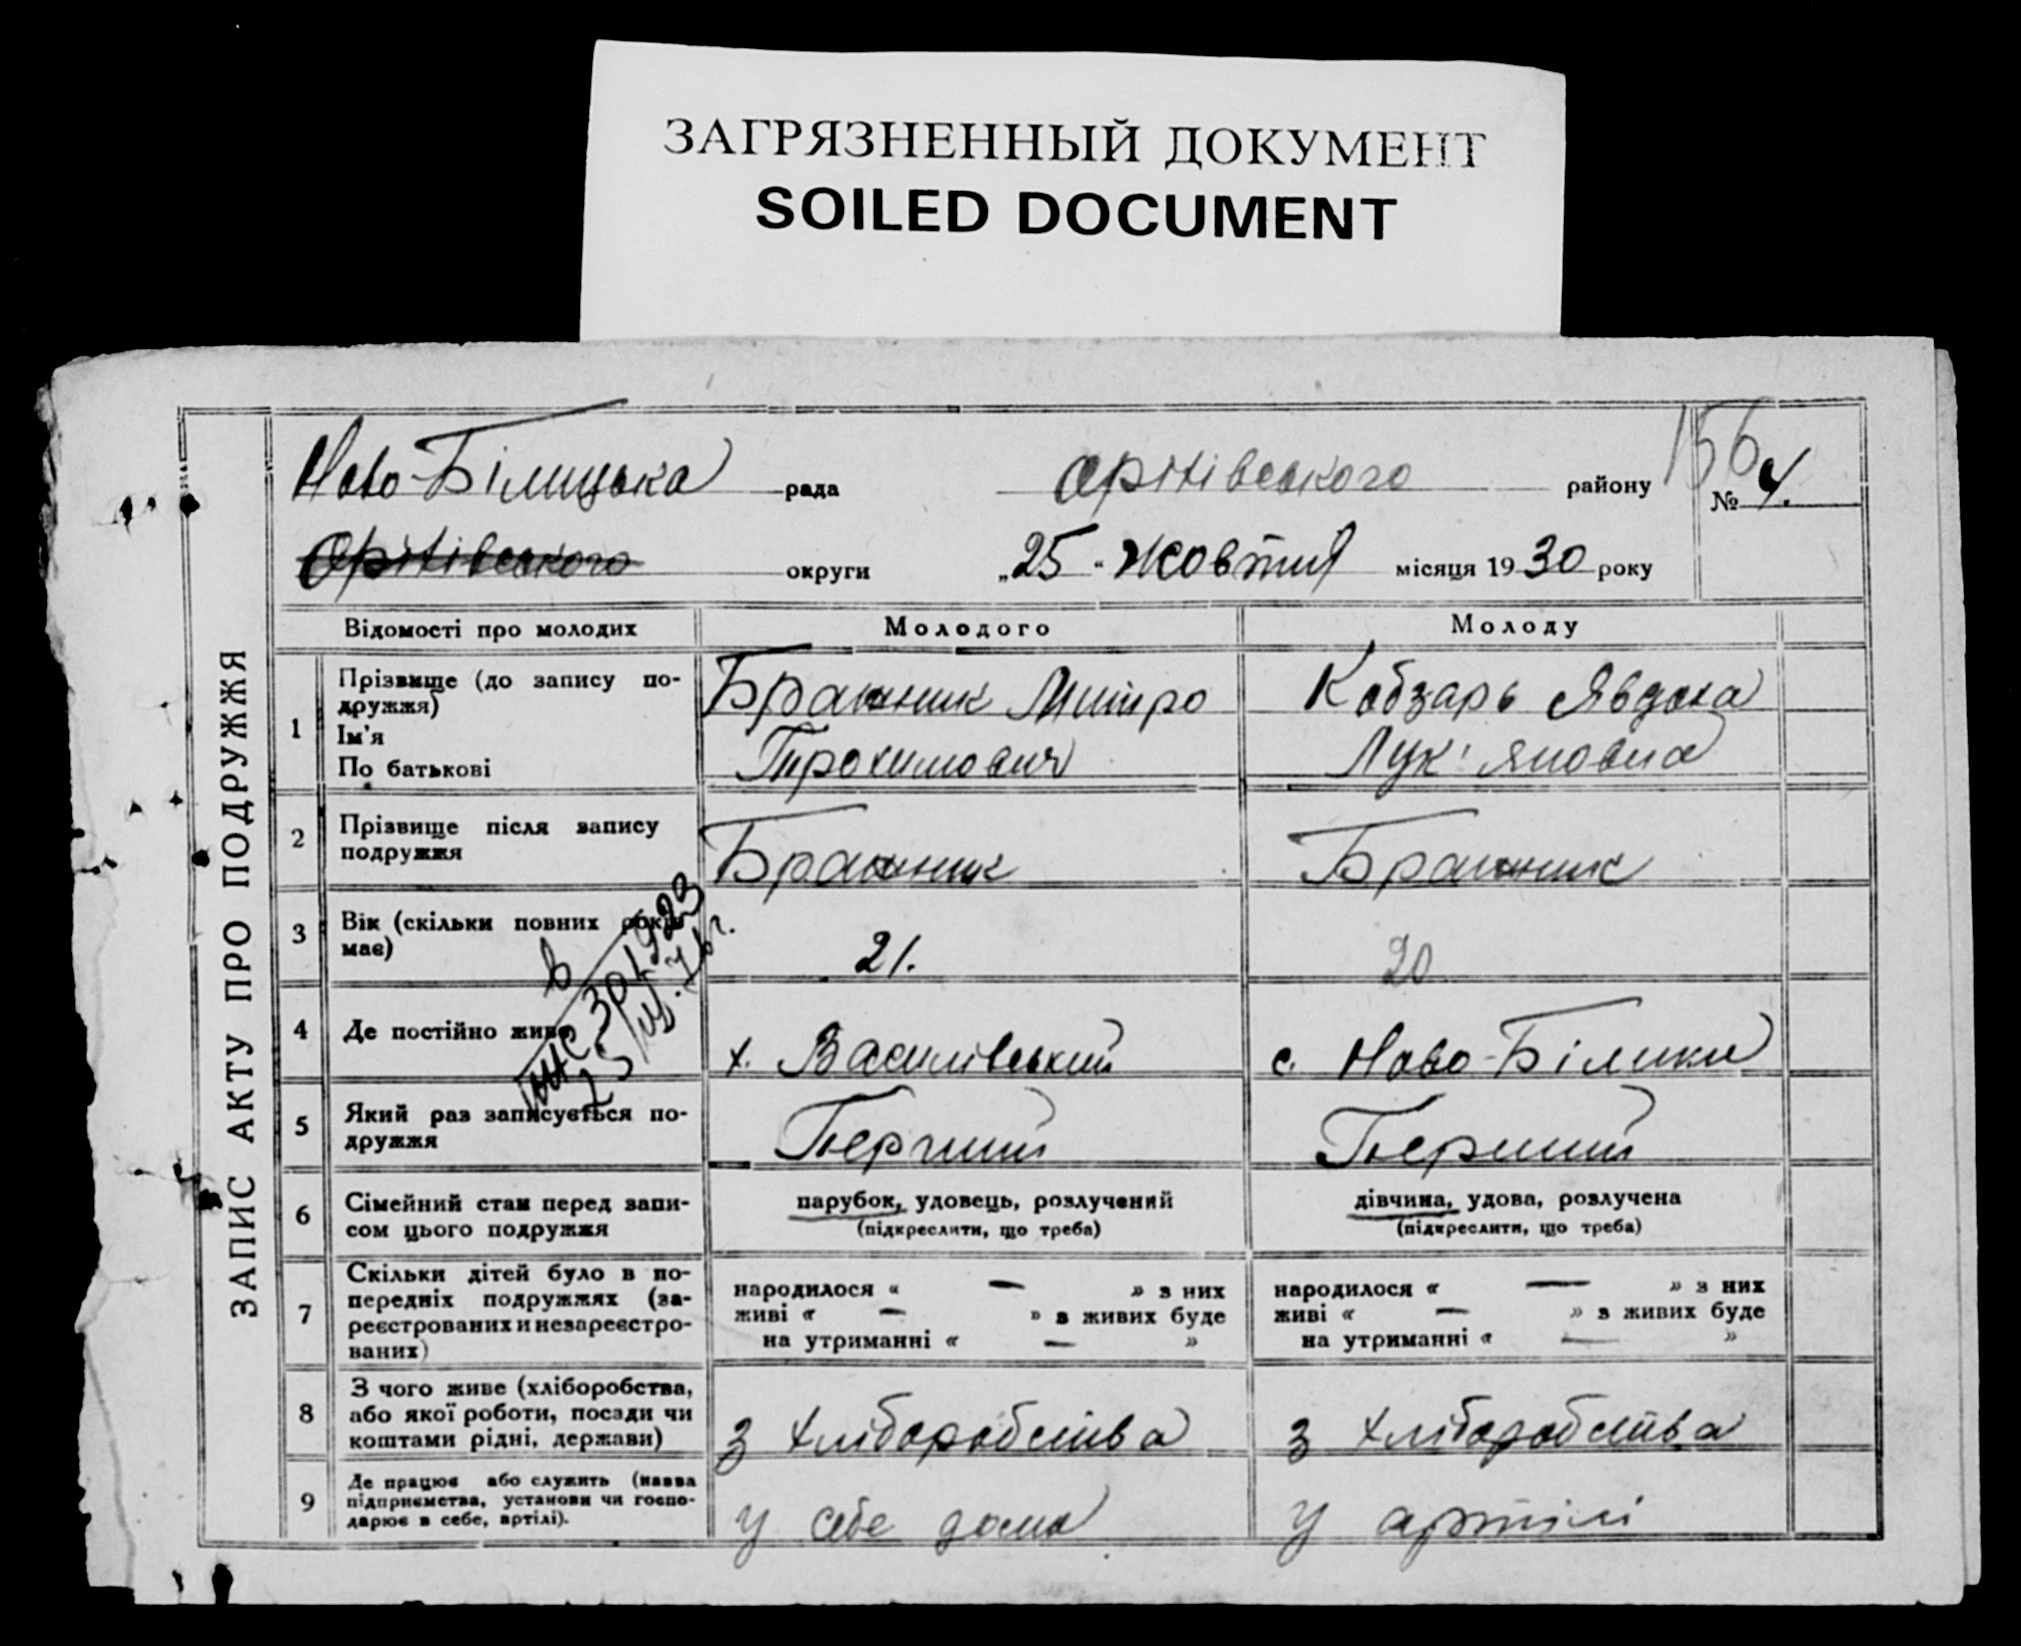 ЗАГРЯЗНЕННЫЙ ДОКУМЕНТ
SOILED DOCUMENT
ЗАПИС АКТУ ПРО ПОДРУЖЖЯ
Ново-Білицька рада
району
156
№ 4.
округи
„25“ Жовтня місяця 1930 року
Відомості про молодих
Молодого
Молоду
1
Прізвище (до запису по-
дружжя)
Ім'я
По батькові
Бражник Митро
Трохимович
Кобзарь Явдоха
Лук'яновна
2
Прізвище після запису
подружжя
Бражник
Бражник
3
Вік (скільки повних років
має)
21.
20
4
Де постійно живе
х. Василівський
с. Ново-Білики
5
Який раз записується по-
дружжя
Перший
Перший
6
Сімейний стан перед запи-
сом цього подружжя
парубок, удовець, розлучений
(підкреслити, що треба)
дівчина, удова, розлучена
(підкреслити, що треба)
7
Скільки дітей було в по-
передніх подружжях (за-
реєстрованих и незареєстро-
ваних)
народилося « — » з них
живі « — » з живих буде
на утриманні « — »
народилося « — » з них
живі « — » з живих буде
на утриманні « — »
8
З чого живе (хліборобства,
або якої роботи, посади чи
коштами рідні, держави)
з хліборобства
з хліборобства
9
Де працює або служить (назва
підприємства, установи чи госпо-
дарює в себе, артілі).
у себе дома
у артілі